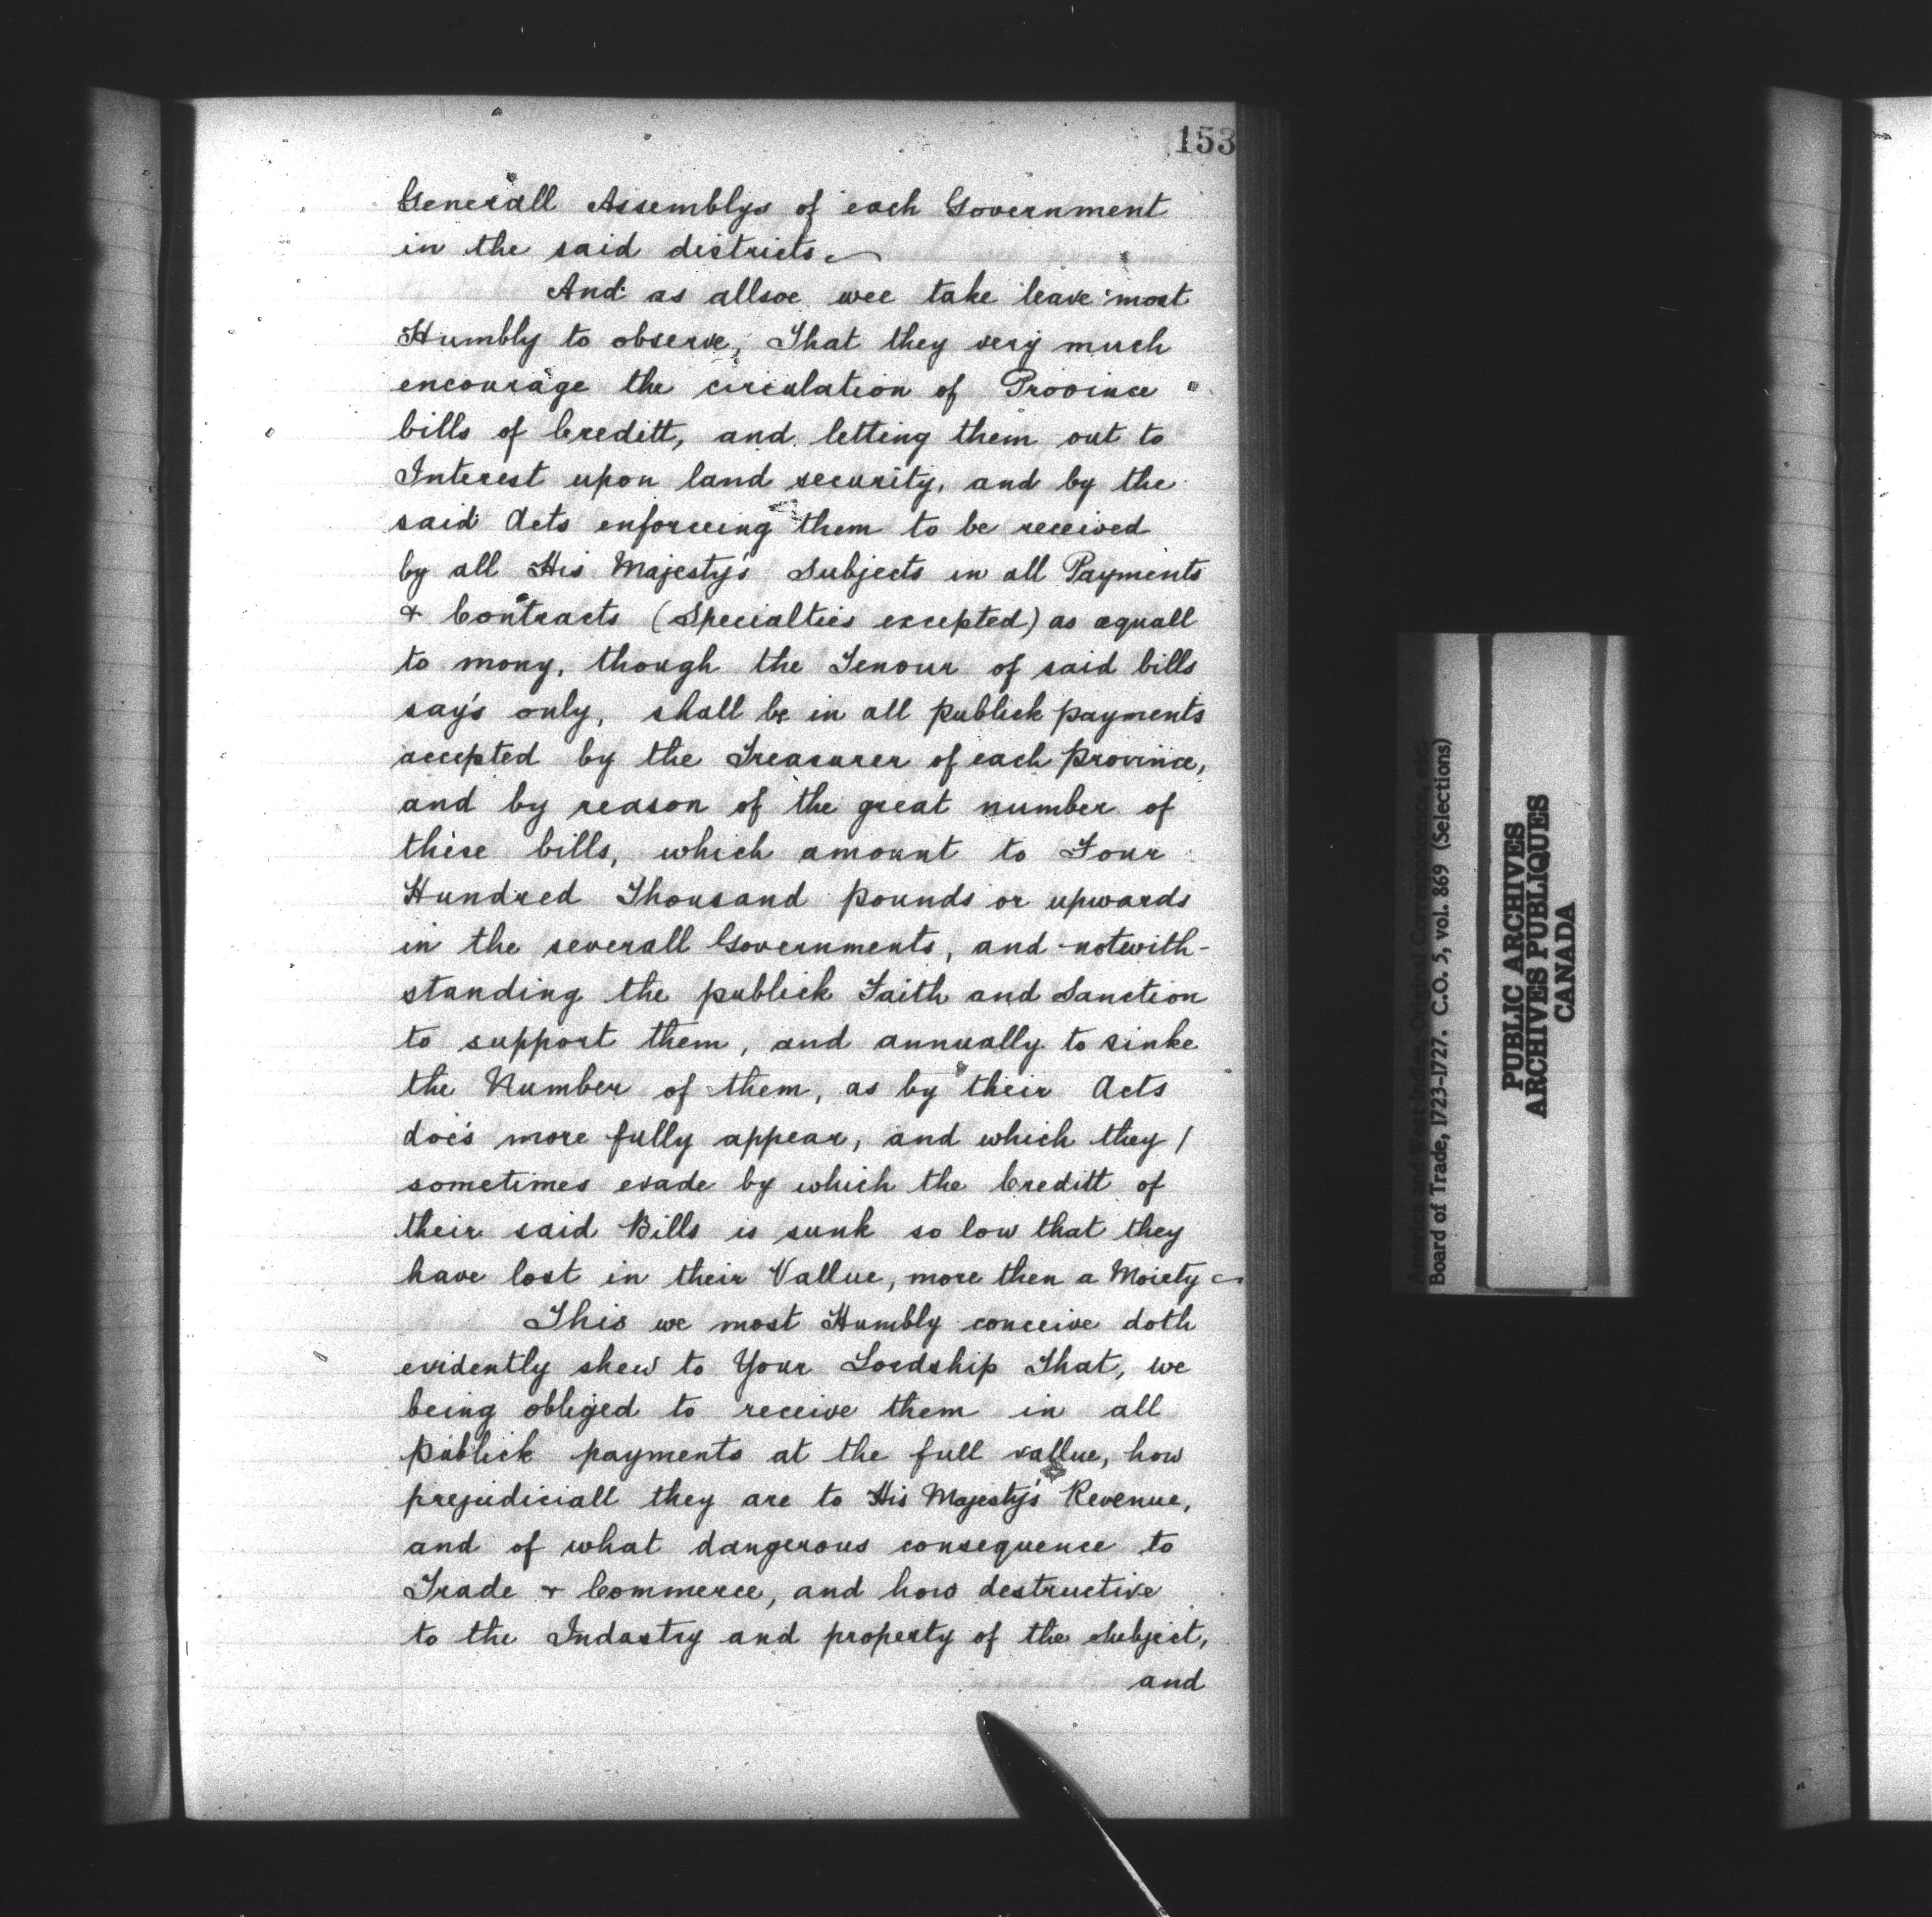 153
Generall Assemblys of each Government
in the said districts.
And as allsoe wee take leave most
Humbly to observe, That they very much
encourage the circulation of Province
bills of Creditt, and letting them out to
Interest upon land security, and by the
said Acts enforceing them to be received
by all His Majesty's Subjects in all Payments
& Contracts (Specialties excepted) as equall
to mony, though the Tenour of said bills
say's only, shall be in all publick payments
accepted by the Treasurer of each province,
and by reason of the great number of
these bills, which amount to Four
Hundred Thousand pounds or upwards
in the severall Governments, and notwith-
standing the publick Faith and Sanction
to support them, and annually to sinke
the Number of them, as by their Acts
doe's more fully appear, and which they /
sometimes evade by which the Creditt of
their said Bills is sunk so low that they
have lost in their Vallue, more then a Moiety
This we most Humbly conceive doth
evidently shew to Your Lordship That, we
being obliged to receive them in all
publick payments at the full vallue, how
prejudiciall they are to His Majesty's Revenue,
and of what dangerous consequence to
Trade & Commerce, and how destructive
to the Industry and property of the subject,
and
America and West Indies, Original Correspondence, etc.,
Board of Trade, 1723-1727. C.O. 5, vol. 869 (Selections)
PUBLIC ARCHIVES
ARCHIVES PUBLIQUES
CANADA